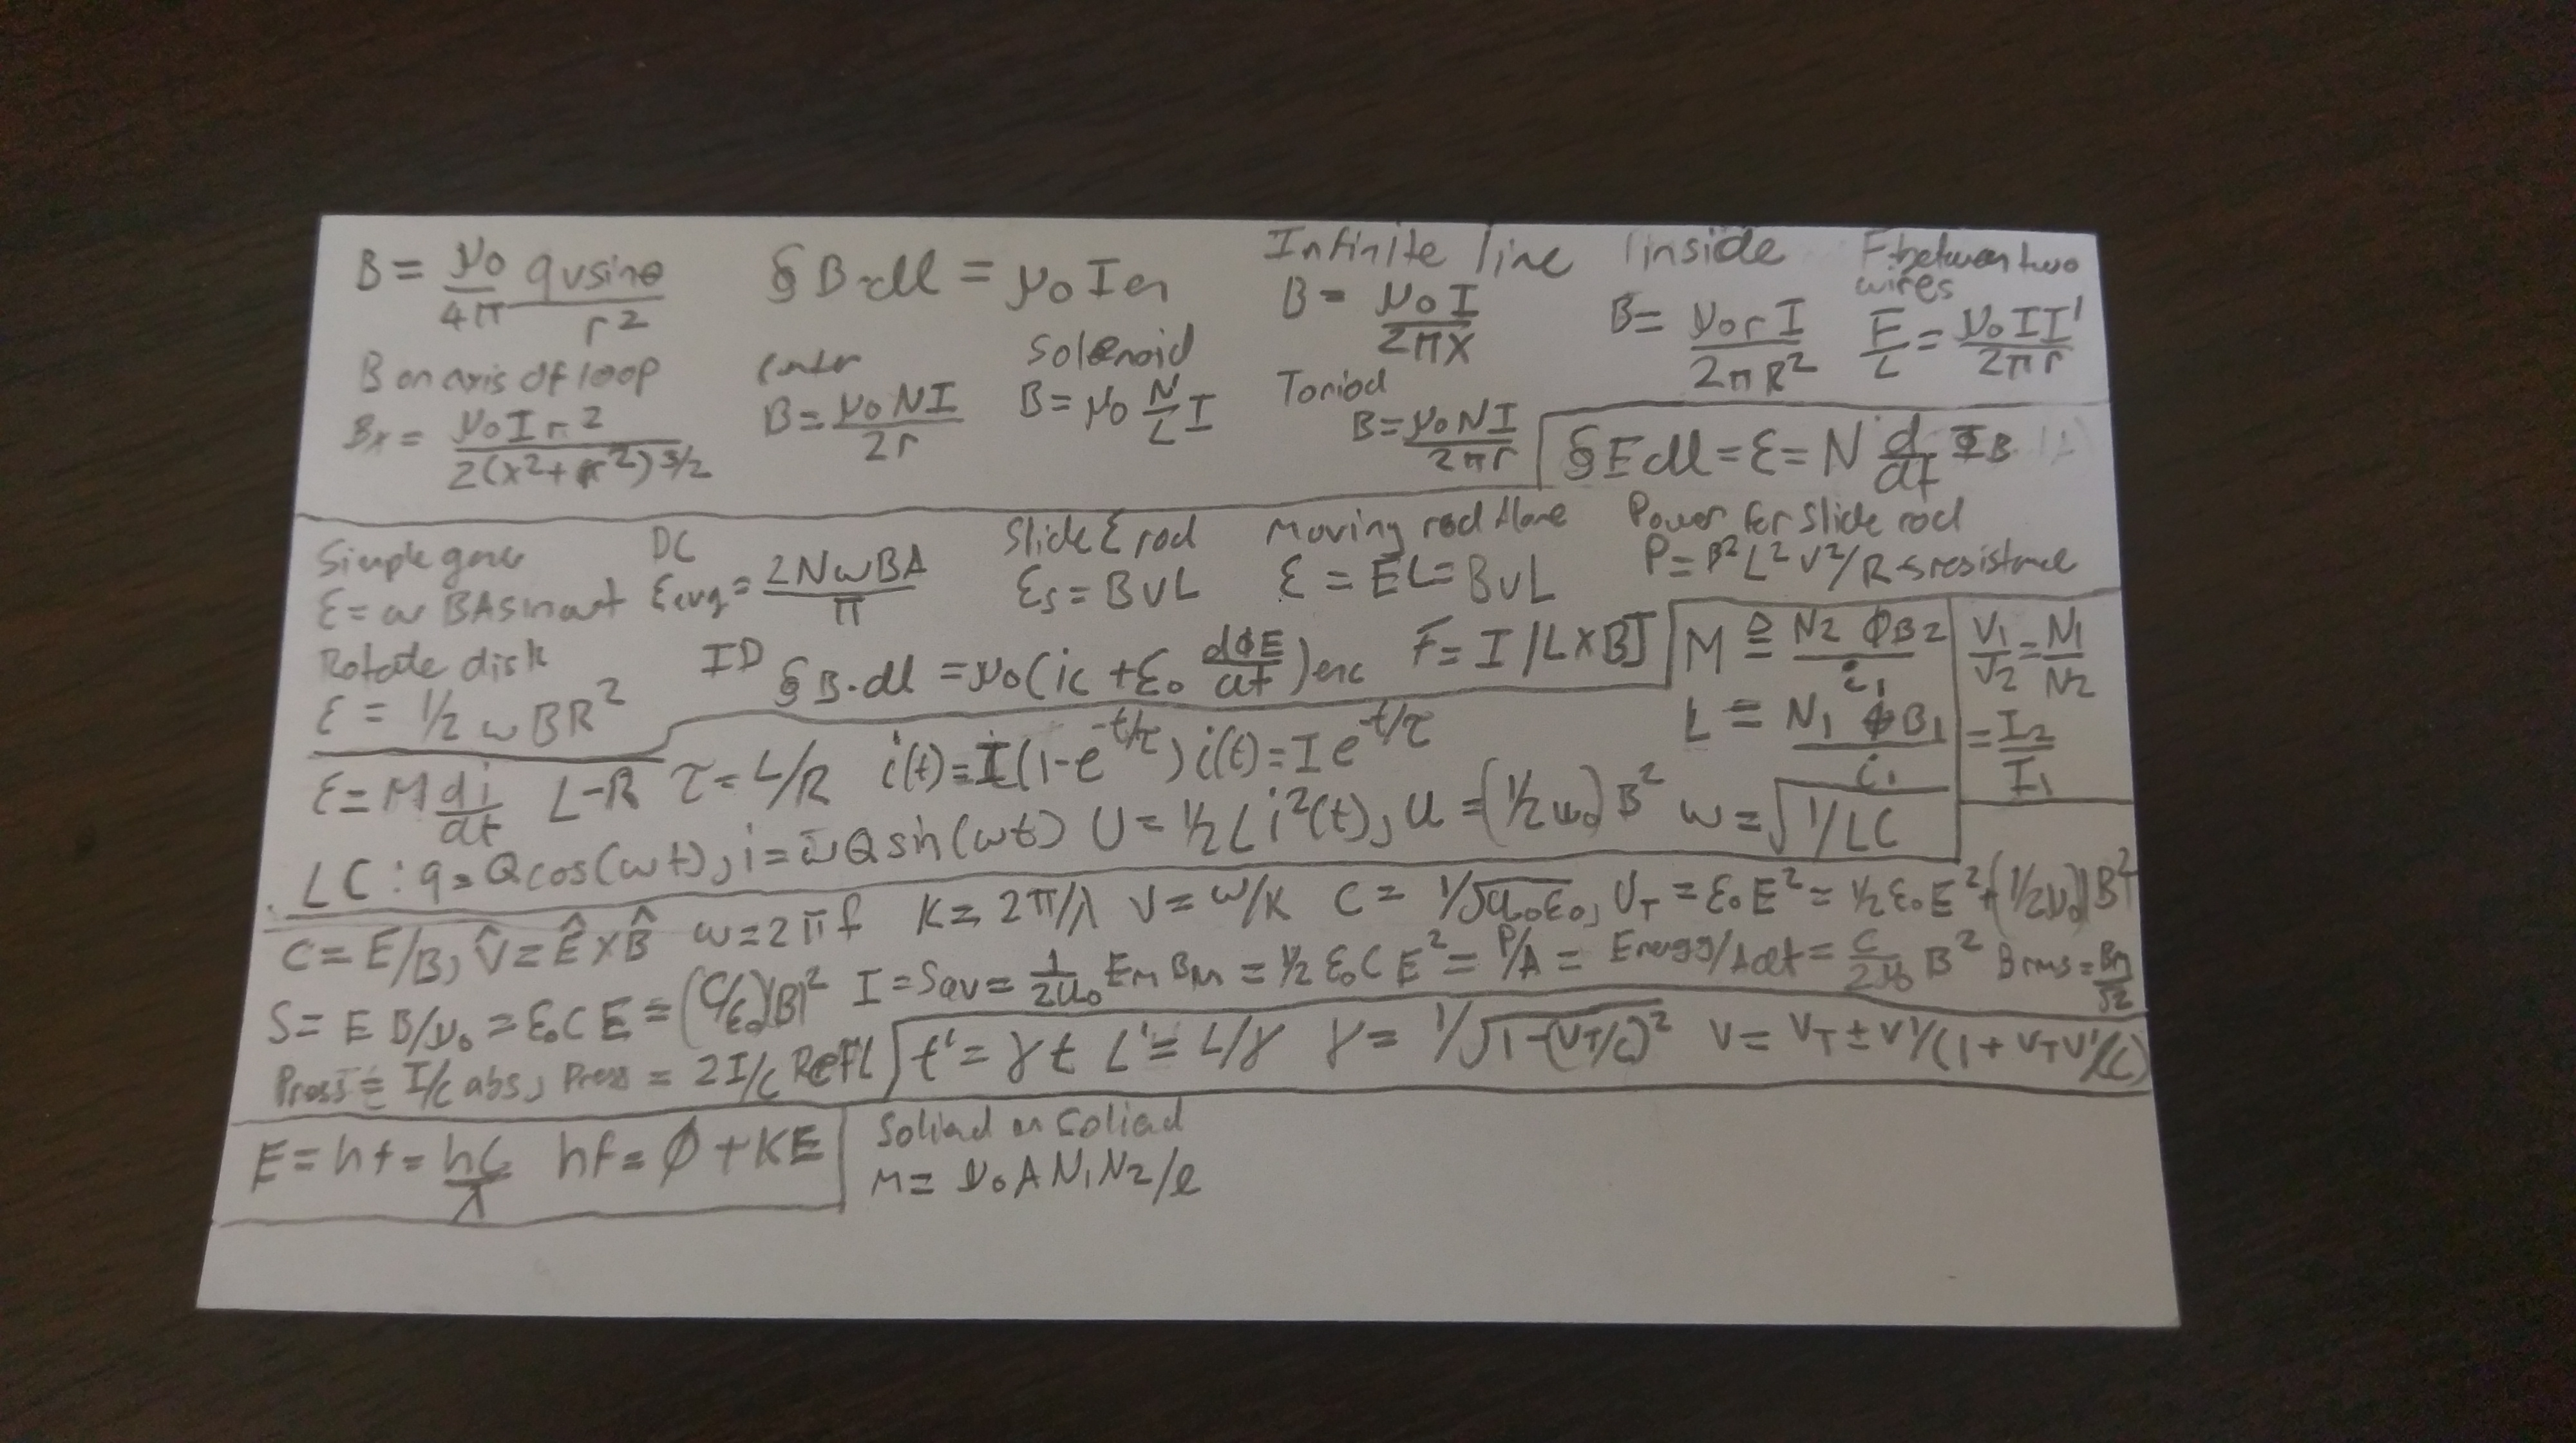 B = μ0/4π qvsinθ/r² §B·dl = μ0 Ien Infinite line B = μ0I/2πx Inside B = μ0rI/2πR² F between two wires F/L = μ0II'/2πr
B on axis of loop Bx = μ0Ir²/2(x²+r²)^3/2 B = μ0NI/2r Solenoid B = μ0 N/L I Toriod B = μ0NI/2πr §E dl = ε = N d/dt ΦB
Simple gen ε = ω BA sin ωt DC εavg = 2NωBA/π Slide ε rod εs = BvL Moving rod alone ε = EL = BvL Power for slide rod P = B²L²v²/R resistance
Rotate disk ε = 1/2 ωBR² ID §B·dl = μ0(ic + ε0 dΦE/dt)enc F = I |L×B| M ≙ N2 ΦB2/i1 V1/V2 = N1/N2
L = N1 ΦB1/i1 = I2/I1
ε = M di/dt L-R τ = L/R i(t) = I(1-e^-t/τ) i(t) = I e^-t/τ
LC: q = Qcos(ωt), i = ωQ sin(ωt) U = 1/2 L i²(t), u = (1/2μ0)B² ω = √1/LC
C = E/B, v̂ = Ê×B̂ ω = 2πf K = 2π/λ V = ω/K C = 1/√μ0ε0, UT = ε0E² = 1/2 ε0E² + (1/2μ0)B²
S = E B/μ0 = ε0 C E = (C/ε0)(B)² I = Sav = 1/2μ0 EM BM = 1/2 ε0 C E² = P/A = Energy/A dt = C/2μ0 B² Brms = Bm/√2
Press = I/c abs, Press = 2I/c Refl t' = γt L' = L/γ γ = 1/√1-(VT/c)² V = VT ± V'/(1 + VTV'/C)
E = hf = hc/λ hf = Φ + KE Soliad on Soliad
M = μ0 A N1N2/l